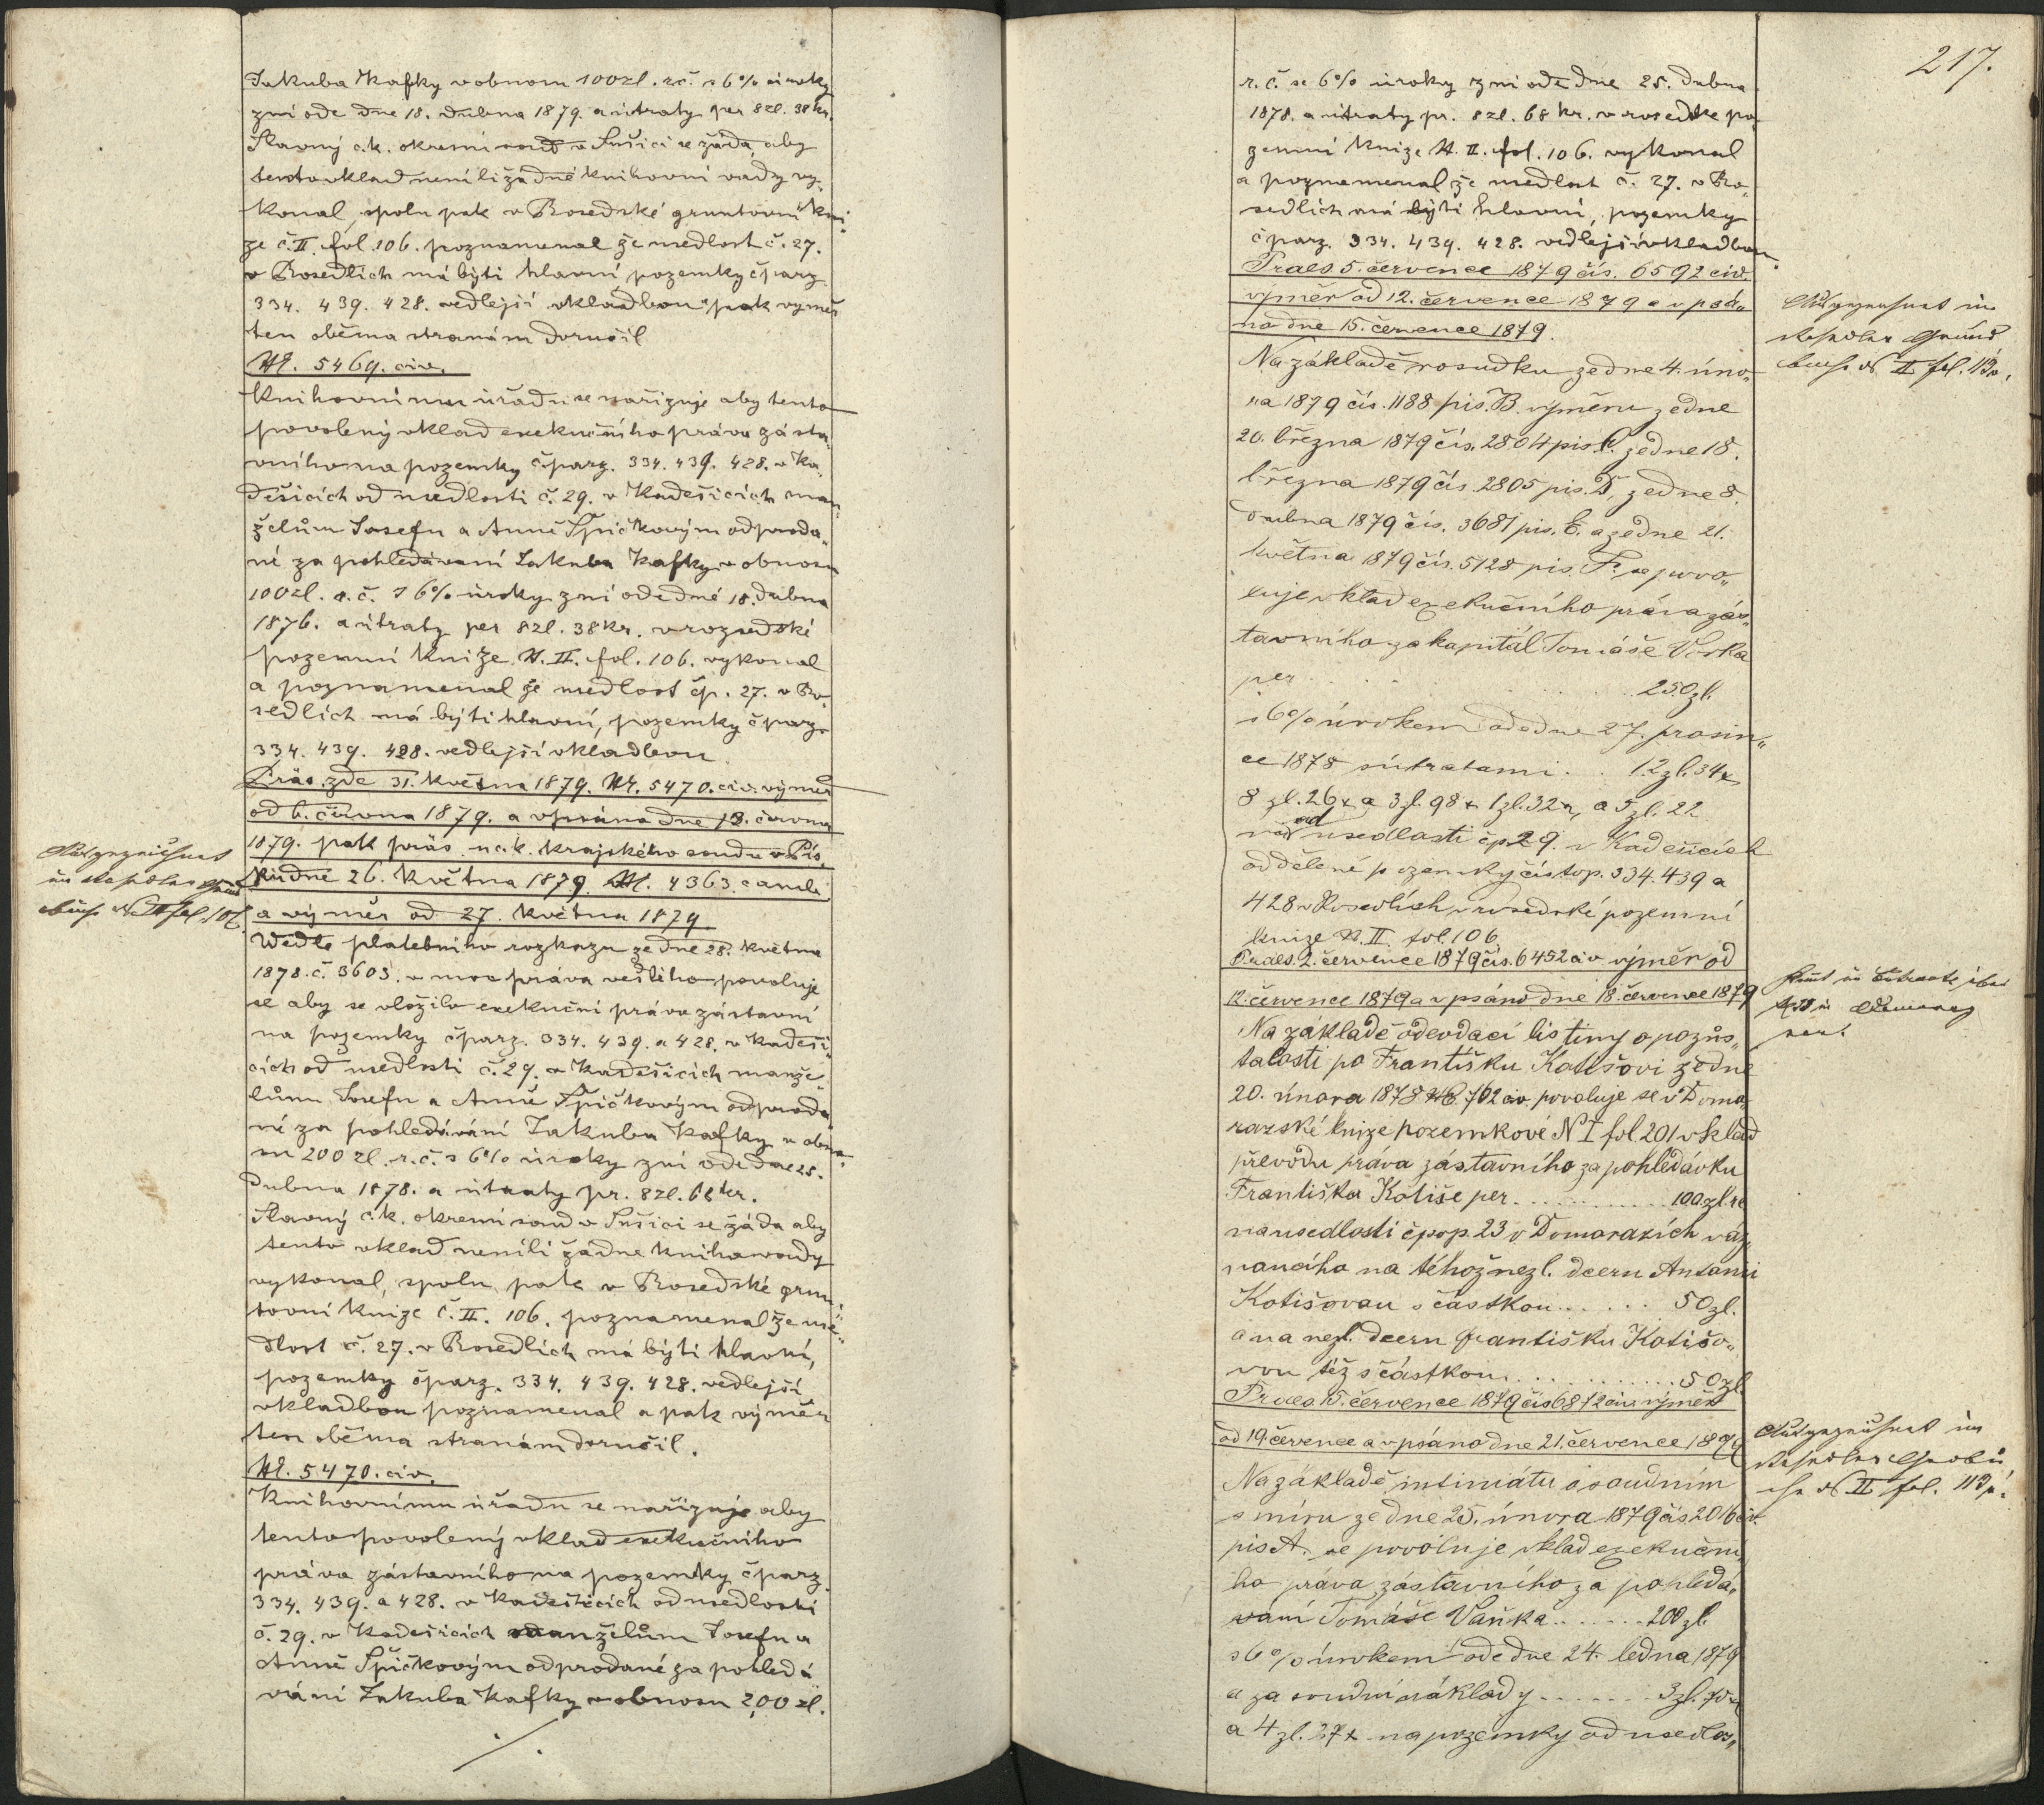 Jakuba Kafky v obnosu 100 zl. r.č. s 6% úroky
zní ode dne 18. dubna 1879. a útraty per 8 zl. 38 kr.
Slavný c.k. okresní soud v Sušici se žádá, aby
tento vklad neníli žádné knihovní vady vy-
konal, spolu pak v Rosedské gruntovní kni-
ze č. II. fol. 106. poznamenal že usedlost č. 27.
v Rosedlích má býti hlavní pozemky čparz
334. 439. 428. vedlejší vkladbou pak výměr
ten oběma stranám doručil
N. 5469. civ.
Knihovnímu úřadu se nařizuje aby tento
povolený vklad exekučního práva zásta-
vního na pozemky čparz. 334. 439. 428. v Ka-
dešicích od usedlosti č. 29. v Kadešicích man-
želům Josefu a Anně Špičkovým odproda-
né za pohledávaní Jakuba Kafky v obnosu
100 zl. r. č. s 6% úroky zní ode dne 18. dubna
1876. a útraty per 8 zl. 38 kr. v rozsedské
pozemní knize N. II. fol. 106. vykonal
a poznamenal že usedlost čp. 27. v Ro-
sedlích má býti hlavní, pozemky čparz.
334. 439. 428. vedlejší vkladbou
Präs. zde 31. května 1879. N. 5470. civ. výměr
od 6. června 1879. a vpsáno dne 13. června
1879. pak präs. u c.k. krajského soudu v Pís-
ku dne 26. května 1879. N. 4363.
a výměr od 27. května 1879
Ausgezeichnet
im Rosedler Grund
buch N. II fol. 106.
Wedle platebního rozkazu ze dne 28. května
1878. č. 3603. v moc práva vešlého povoluje
se aby se vložilo exekuční právo zástavní
na pozemky čparz. 334. 439. a 428. v Kadeši-
cích od usedlosti č. 29. v Kadešicích manže-
lům Josefu a Anně Špičkovým odproda-
né za pohledávání Jakuba Kafky v obno-
su 200 zl. r. č. s 6% úroky zní ode dne 25.
Dubna 1878. a útraty pr. 8 zl. 68 kr.
Slavný c.k. okresní soud v Sušici se žádá aby
tento vklad neníli žádné kniho vady
vykonal, spolu pak v Rosedské grun-
tovní knize č. II. 106. poznamenal že use-
dlost č. 27. v Rosedlích má býti hlavní,
pozemky čparz. 334. 439. 428. vedlejší
vkladbou poznamenal a pak výměr
ten oběma stranám doručil.
N. 5470. civ.
Knihovnímu úřadu se nařizuje aby
tento povolený vklad exekučního
práva zástavního na pozemky čparz.
334. 439. a 428. v Kadešicích od usedlosti
č. 29. v Kadešicích manželům Josefu a
Anně Špičkovým odprodané za pohledá-
vání Jakuba Kafky v obnosu 200 zl.
./.
217.
r. č. se 6% úroky zní ode dne 25. dubna
1878. a útraty pr. 8 zl. 68 kr. v rosedske po-
zemní knize N. II. fol. 106. vykonal
a poznamenal že usedlost č. 27. v Ro-
sedlích má býti hlavní, pozemky
čparz. 334. 439. 428. vedlejší vkladbou.
Praes 5. července 1879 čís. 6592 civ.
výměr od 12. července 1879 a vpsá„
no dne 15. července 1879.
Ausgezeichnet im
Rosedler Grund
buch N II fol. 113.
Na základě rosudku ze dne 4. úno„
ra 1879 čís. 1188 pis. B. výměru ze dne
20. března 1879 čís. 2804 pis. C. ze dne 18.
března 1879 čís. 2805 pis. D, ze dne 8.
dubna 1879 čís. 3681 pis. E. a ze dne 21.
května 1879 čís. 5128 pis. F. se povo„
luje vklad exekučního práva zás„
tavního za kapitál Tomáše
per . . . . . . 250 zl.
s 6% úrokem ode dne 27. prosin„
ce 1878 s útratami . . 12 zl. 34 x
8 zl. 26 x a 3 zl. 98 x 1 zl. 32 x, a 5 zl. 22
na od usedlosti čp 29. v Kadešicích
oddělené pozemky čís top. 334. 439 a
428 v Rosedlích v rosedské pozemní
knize N. II. fol. 106
Praes. 2. července 1879 čís. 6452 civ výměr od
12. července 1879 a vpsáno dne 18. července 1879
Na základě odevzdací listiny o pozůs„
talosti po Františku Kotišovi ze dne
20. února 1878 N. 702 civ povoluje se v Doma
razské knize pozemkové N I fol 201 vklad
převodu práva zástavního za pohledávku
Františka Kotiše per . . . . . . 100 zl. rč
na usedlosti čpop. 23 v Domarazích váz
noucího na téhož nezl. dceru Antonii
Kotišovou s částkou . . . . . . 50 zl.
a na nezl. dceru Františku Kotišo„
vou též s částkou . . . . . . 50 zl.
Praes. 15. července 1879 čís 6872 civ. výměr
od 19. července a vpsáno dne 21. července 1879
Ausgezeichnet im
Rosedler Grundbu
ch N II fol. 113.
Na základě intimátu o soudním
smíru ze dne 25. února 1879 čís 2016 civ.
pis A. se povoluje vklad exekuční„
ho práva zástavního za pohledá„
vání Tomáše Vaňka . . . . . . 200 zl.
s 6% úrokem ode dne 24. ledna 1879
a za soudní náklady . . . . . . 3 zl. 70 x
a 4 zl. 37 x na pozemky od usedlos„